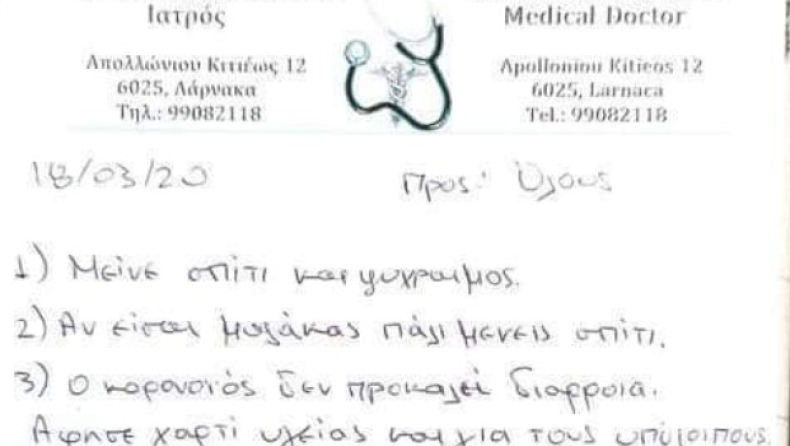 Ιατρός
Απολλώνιου Κιτιέως 12
6025, Λάρνακα
Τηλ.: 99082118
Medical Doctor
Apolloniou Kitieos 12
6025, Larnaca
Tel.: 99082118
18/03/20
Προς: Όλους
1) Μείνε σπίτι και ψύχραιμος.
2) Αν είσαι μαλάκας πάλι μένεις σπίτι.
3) Ο κορονοιός δεν προκαλεί διαρροια.
Αφησε χαρτί υγείας και για τους υπόλοιπους.